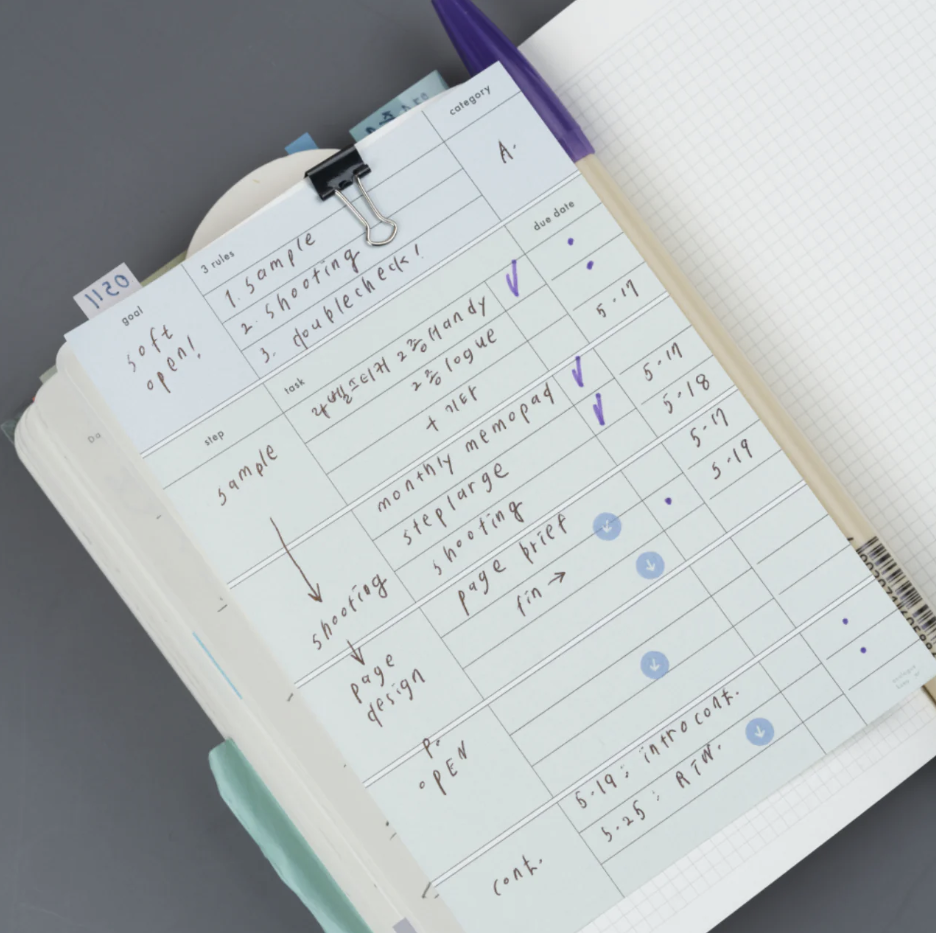 category
A.
3 rules
1. sample
2. shooting
3. doublecheck!
1120
goal
soft
open!
due date
task
2종 Handy
2종 logue
+ 기타
5.17
step
sample
monthly memopad
5.17
steplarge
5.18
shooting
shooting
5.17
page brief
5.19
fin →
page
design
P.
OPEN
5.19: intro cont.
5.25: RTW.
cont.
Da